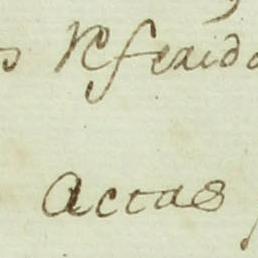 s Referido
Actas